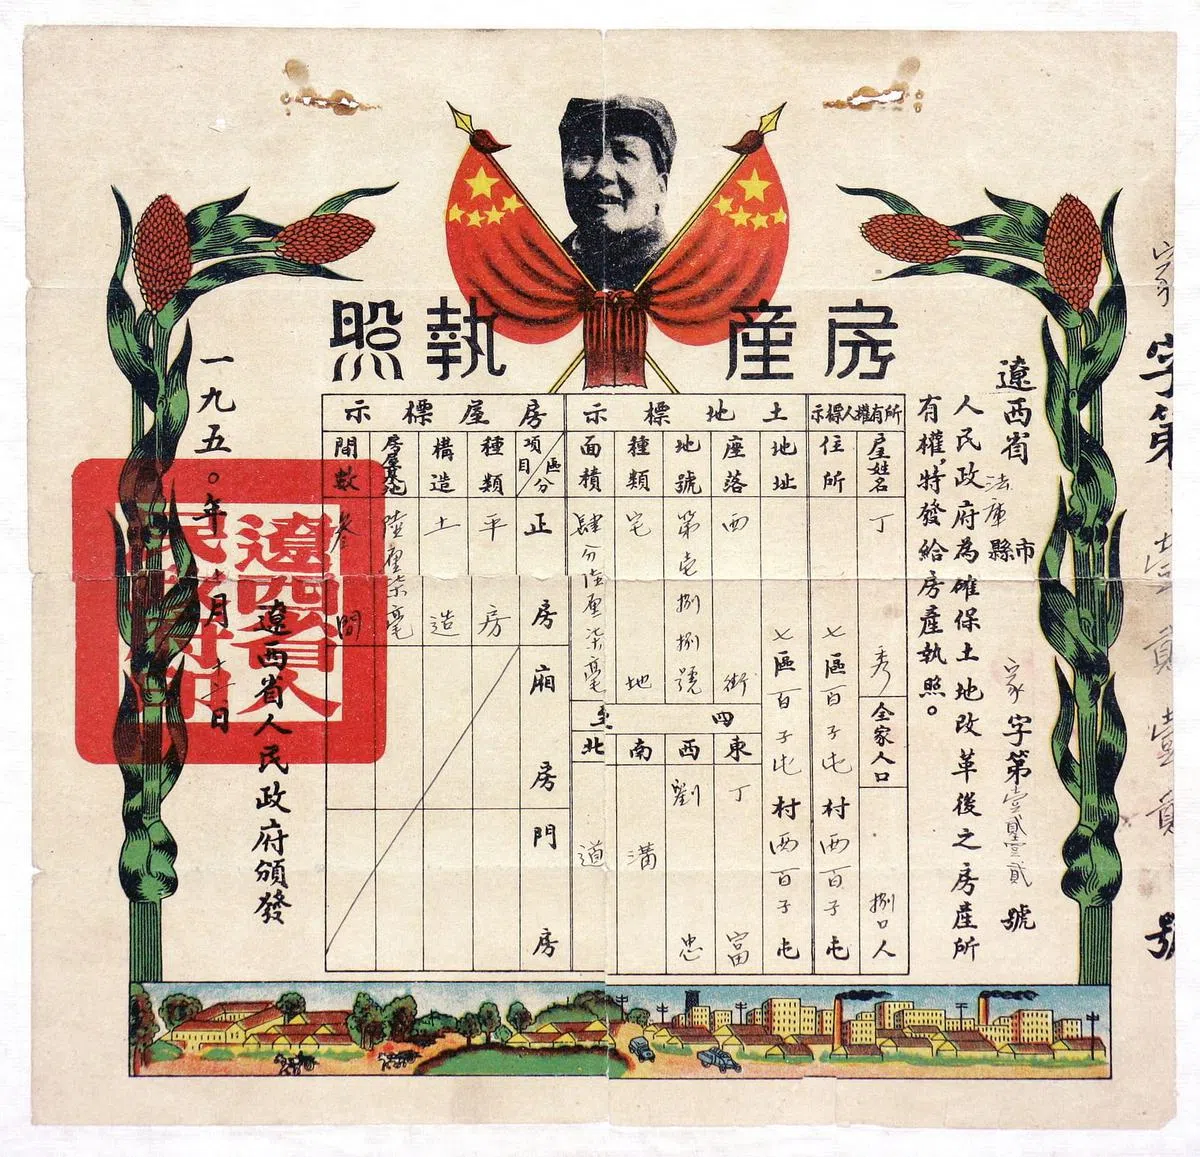 房產執照
字第壹貳壹貳號
遼西省法庫縣市
字第壹貳壹貳號
人民政府為確保土地改革後之房產所
有權,特發給房產執照。
所有權人標示
屋姓名
丁秀
全家人口
捌口人
住所
七區百子屯村西百子屯
土地標示
地址
七區百子屯村西百子屯
座落
西街
地號
第壱捌捌號
種類
宅地
面積
肆分陸厘柒毫
四至
東
丁富
西
劉忠
南
溝
北
道
房屋標示
區分
項目
正房
廂房
門房
種類
平房
構造
土造
房屋基地
陸厘柒毫
間數
叁間
遼西省人民政府頒發
一九五〇年十月十二日
遼西省人民政府印